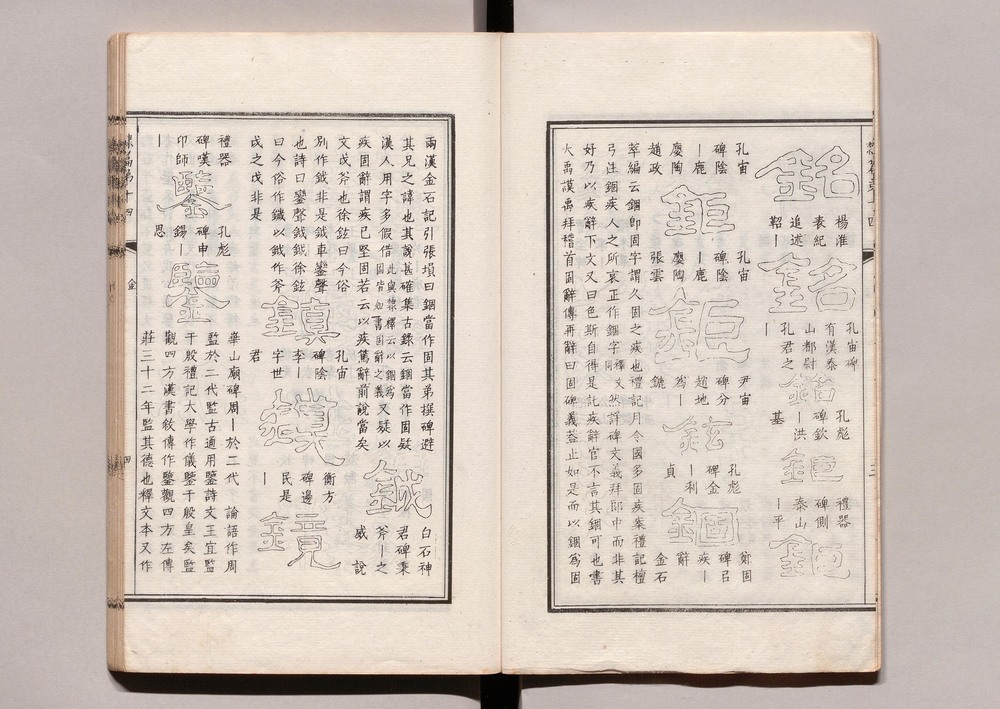 銘
楊淮
表紀
追述
銘
孔宙碑
有漢泰
山都尉
孔君之
—
銘
孔彪
碑欽
—洪
基
鉅
禮器
碑側
泰山
—平
鉅
孔宙
碑陰
—鹿
廮陶
趙政
鉅
孔宙
碑陰
—鹿
廮陶
張雲
鉅
尹宙
碑分
趙地
爲—
鏕
鉉
孔彪
碑金
—利
貞
錮
鄭固
碑㠯
疾—
辭
金石
萃編云錮即固字謂久固之疾也禮記月令國多固疾案禮記檀
弓注錮疾人之所哀正作錮字釋文同然詳碑文義拜郎中而非其
好乃以疾辭下文又曰色斯自得是託疾辭官不言其錮可也書
大禹謨禹拜稽首固辭傳再辭曰固碑義葢止如是而以錮爲固
兩漢金石記引張塤曰錮當作固其弟撰碑避
其兄之諱也其說甚確集古錄云錮當作固疑
漢人用字多假借此與隸釋云以錮爲固皆如書固辭之義又疑以
疾固辭謂疾已堅固若云以疾篤辭前說當矣
鉞
白石神
君碑秉
斧—之
威
說
文戉斧也徐鉉曰今俗
別作鉞非是鉞車鑾聲
也詩曰鑾聲鉞鉞徐鉉
曰今俗作鐬以鉞作斧
戉之戉非是
鎮
孔宙
碑陰
李—
字世
君
鏌
衡方
碑邊
民是
—
鏡
禮器
碑嘆
卬師
—
鑒
孔彪
碑申
錫—
恩
鑒
華山廟碑周—於二代 論語作周
監於二代監古通用鑒詩文王宜監
于殷禮記大學作儀鑒于殷皇矣監
觀四方漢書敘傳作鑒觀四方左傳
莊三十二年監其德也釋文本又作
第十四
金
四